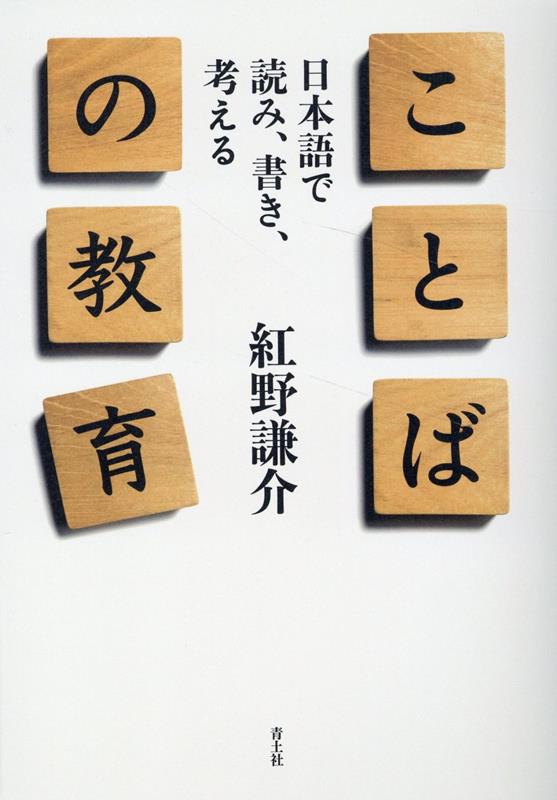 ことば
の教育
日本語で
読み、書き、
考える
紅野謙介
青土社